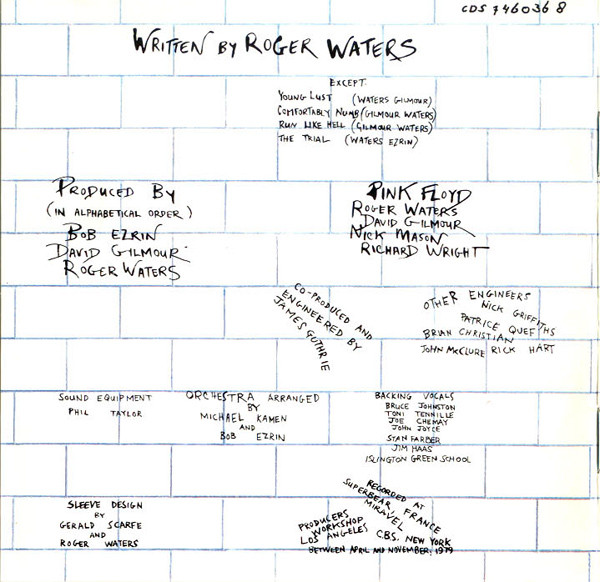 CDS 746036 8
WRITTEN BY ROGER WATERS
EXCEPT:
YOUNG LUST (WATERS GILMOUR)
COMFORTABLY NUMB (GILMOUR WATERS)
RUN LIKE HELL (GILMOUR WATERS)
THE TRIAL (WATERS EZRIN)
PRODUCED BY
(IN ALPHABETICAL ORDER)
BOB EZRIN
DAVID GILMOUR
ROGER WATERS
PINK FLOYD
ROGER WATERS
DAVID GILMOUR
NICK MASON
RICHARD WRIGHT
CO-PRODUCED AND
ENGINEERED BY
JAMES GUTHRIE
OTHER ENGINEERS
NICK GRIFFITHS
PATRICE QUEF
BRIAN CHRISTIAN
JOHN McCLURE RICK HART
SOUND EQUIPMENT
PHIL TAYLOR
ORCHESTRA ARRANGED
BY
MICHAEL KAMEN
AND
BOB EZRIN
BACKING VOCALS
BRUCE JOHNSTON
TONI TENNILLE
JOE CHEMAY
JOHN JOYCE
STAN FARBER
JIM HAAS
ISLINGTON GREEN SCHOOL
SLEEVE DESIGN
BY
GERALD SCARFE
AND
ROGER WATERS
RECORDED AT
SUPERBEAR, FRANCE
MIRAVEL
PRODUCERS
WORKSHOP
LOS ANGELES CBS. NEW YORK
BETWEEN APRIL AND NOVEMBER, 1979